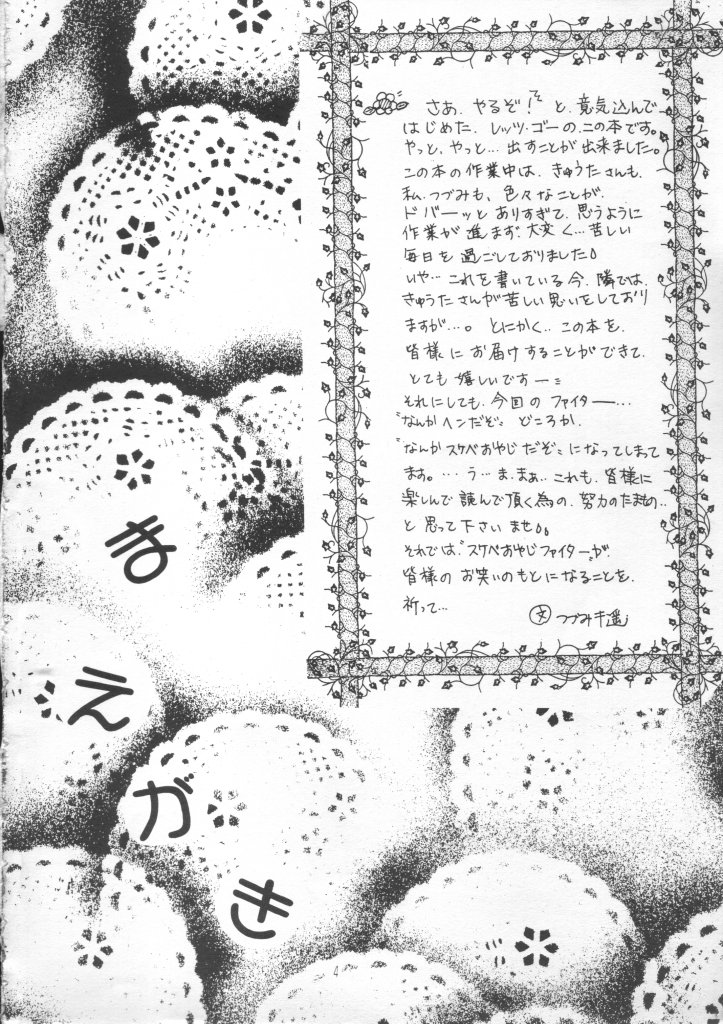 まえがき
さあ、やるぞ!と、意気込んで
はじめた、レッツ・ゴーの、この本です。
やっと、やっと… 出すことが出来ました。
この本の作業中は、きゅうたさんも、
私、つづみも、色々なことが、
ドバーッとありすぎて、思うように
作業が進まず、大変く…苦しい
毎日を過ごしておりました。
いや… これを書いている今、隣では、
きゅうたさんが苦しい思いをしており
ますが…。とにかく、この本を、
皆様にお届けすることができて、
とても嬉しいですーー
それにしても、今回のファイター…
"なんかヘンだぞ"どころか、
"なんかスケベおやじだぞ"になってしまって
ます。…う…ま、まぁ、これも、皆様に
楽しんで読んで頂く為の、努力のたまもの…
と思って下さいませ。
それでは"スケベおやじファイター"が、
皆様のお笑いのもとになることを、
祈って…
文 つづみ遥